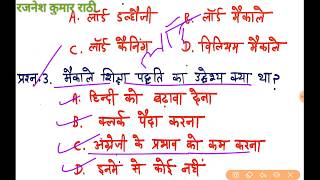 रजनेश कुमार राठी
A. लॉर्ड डल्हौजी B. लॉर्ड मैकाले
C. लॉर्ड कैनिंग D. विलियम मैकाले
प्रश्न 3. मैकाले शिक्षा पद्धति का उद्देश्य क्या था?
A. हिन्दी को बढ़ावा देना
B. क्लर्क पैदा करना
C. अंग्रेजी के प्रभाव को कम करना
D. इनमें से कोई नहीं